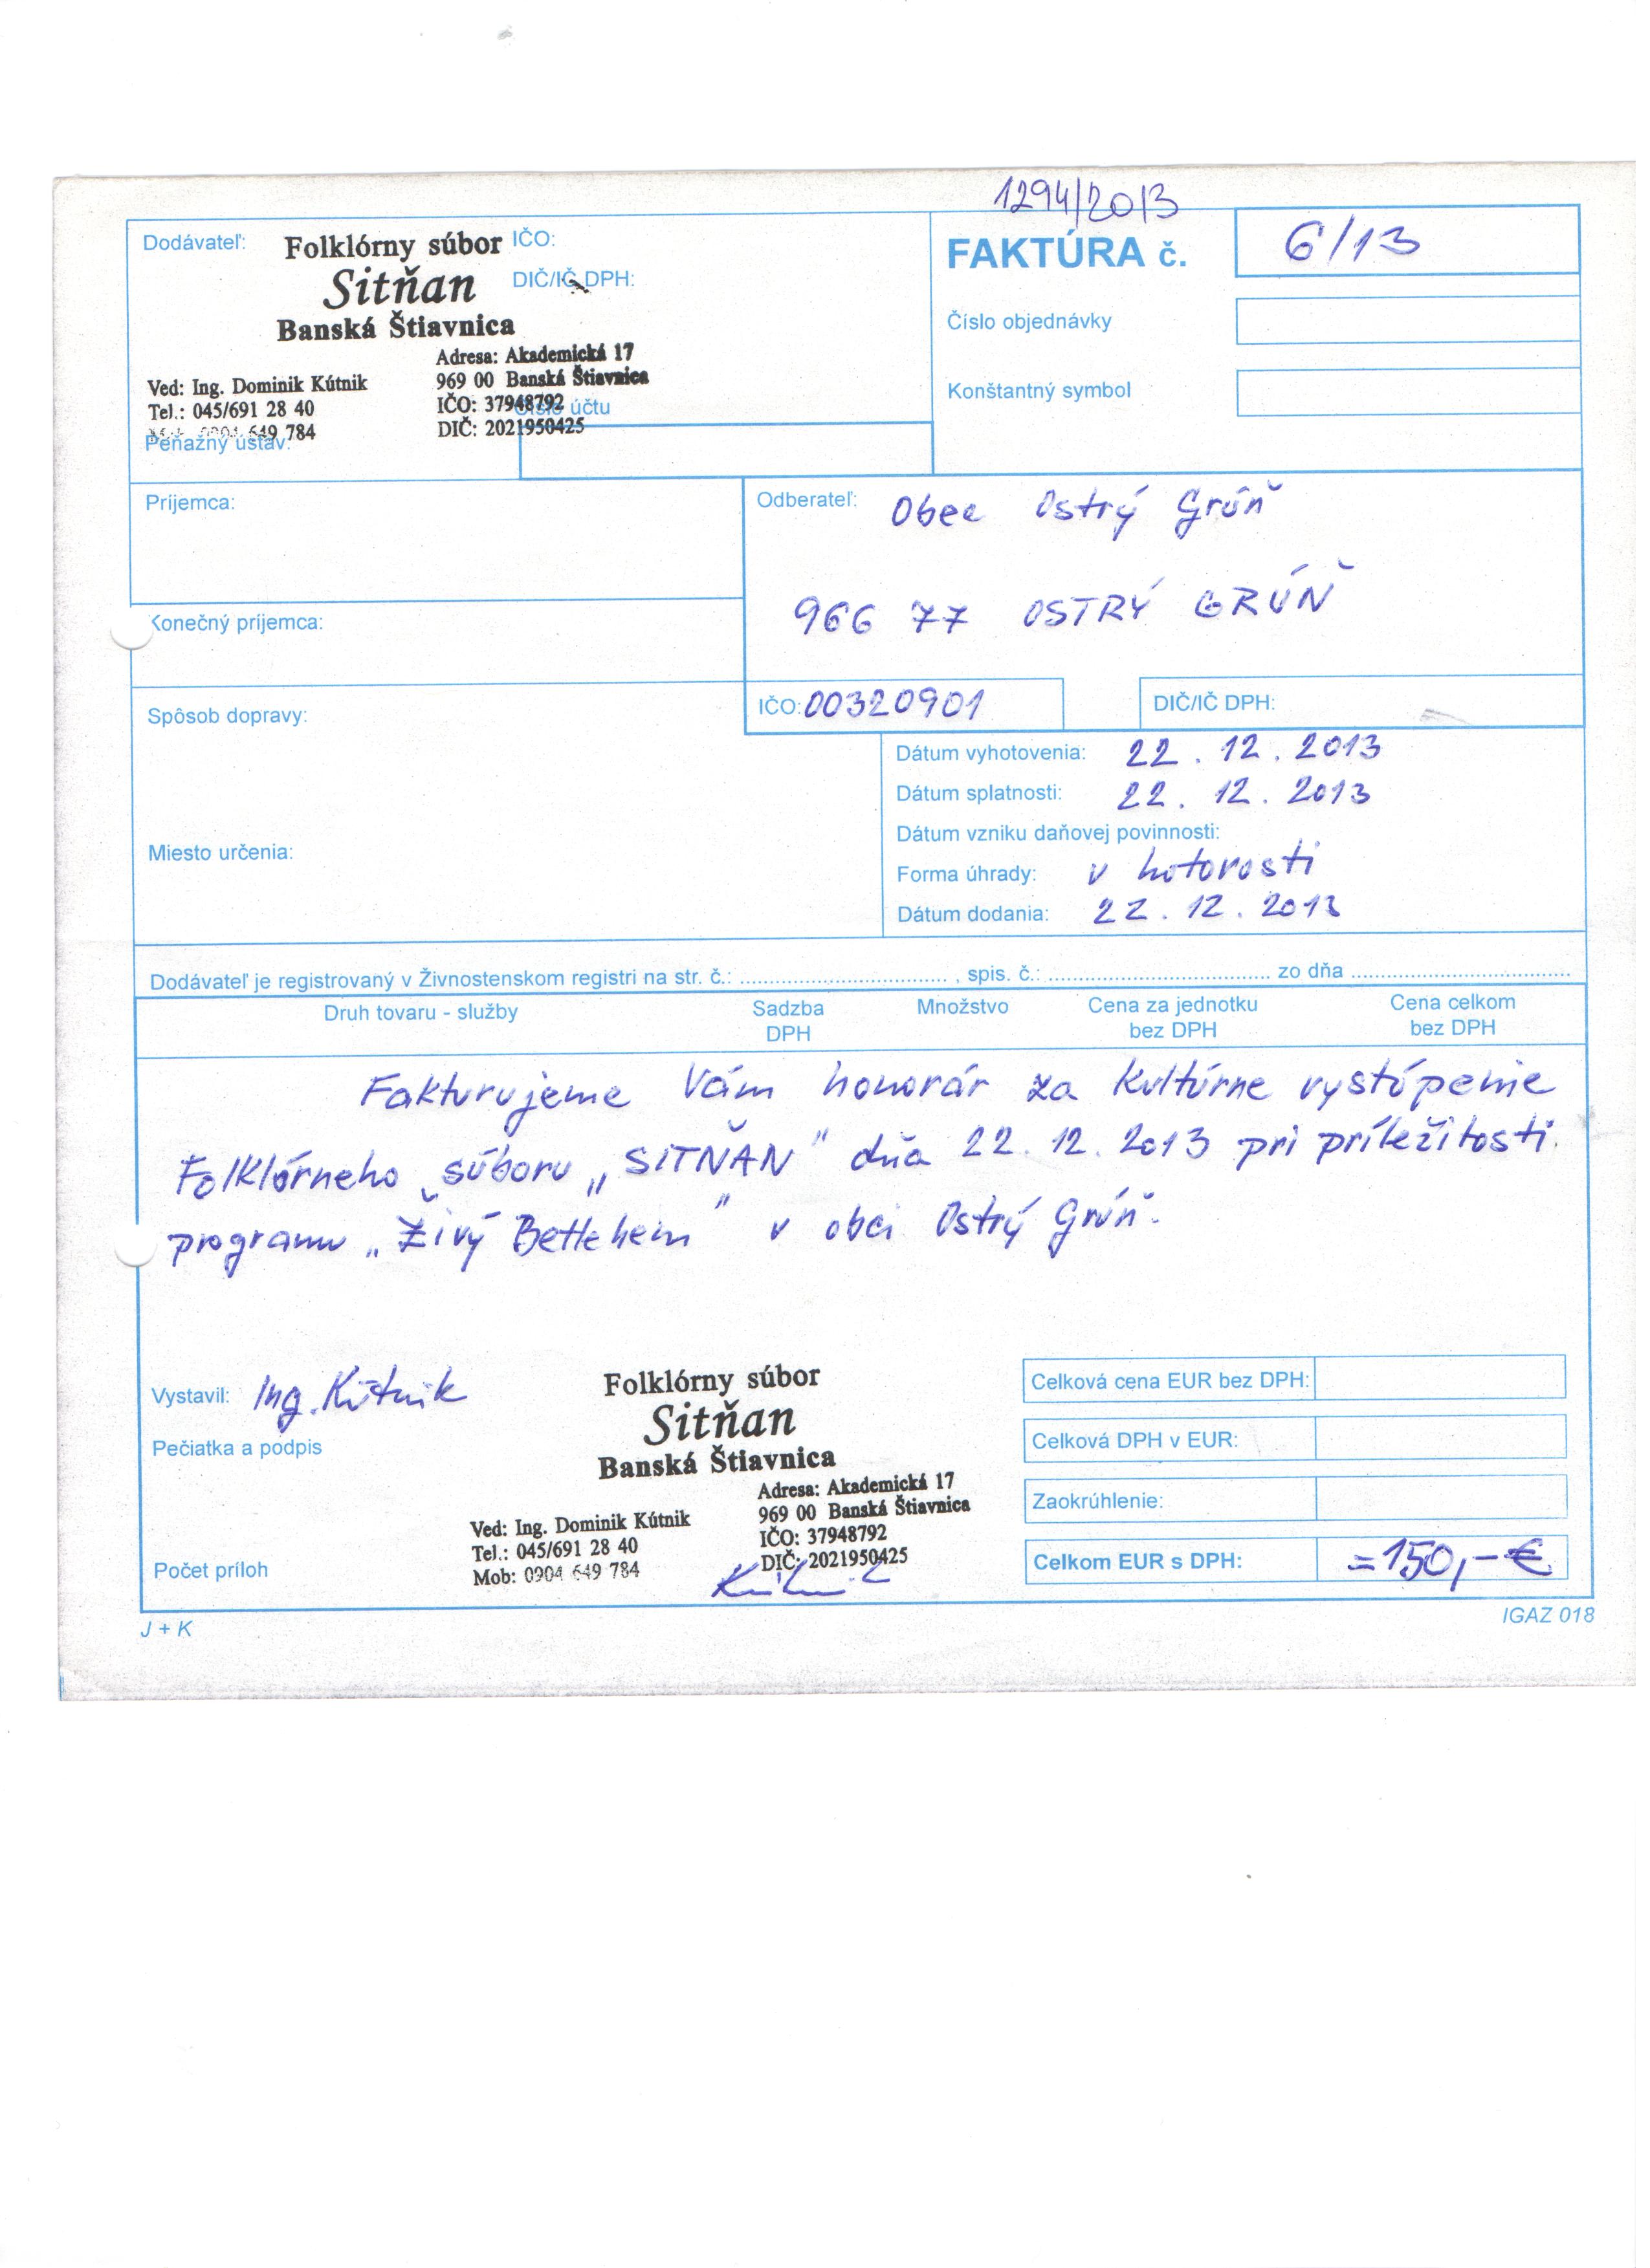 1294/2013
Dodávateľ: Folklórny súbor IČO:
Sitňan DIČ/IČ DPH:
Banská Štiavnica
Adresa: Akademická 17
Ved: Ing. Dominik Kútnik 969 00 Banská Štiavnica
Tel.: 045/691 28 40 IČO: 37948792 Číslo účtu
0904 649 784 DIČ: 2021950425
Peňažný ústav:
FAKTÚRA č. 6/13
Číslo objednávky
Konštantný symbol
Príjemca:
Odberateľ: Obec Ostrý Grúň
966 77 OSTRÝ GRÚŇ
Konečný príjemca:
IČO: 00320901 DIČ/IČ DPH:
Spôsob dopravy:
Miesto určenia:
Dátum vyhotovenia: 22. 12. 2013
Dátum splatnosti: 22. 12. 2013
Dátum vzniku daňovej povinnosti:
Forma úhrady: v hotovosti
Dátum dodania: 22. 12. 2013
Dodávateľ je registrovaný v Živnostenskom registri na str. č.: .................................... , spis. č.: .................................... zo dňa ....................................
Druh tovaru - služby Sadzba DPH Množstvo Cena za jednotku bez DPH Cena celkom bez DPH
Fakturujeme Vám honorár za kultúrne vystúpenie
Folklórneho súboru „SITŇAN" dňa 22. 12. 2013 pri príležitosti
programu „Živý Betlehem" v obci Ostrý Grúň.
Vystavil: Ing. Kútnik
Pečiatka a podpis
Folklórny súbor
Sitňan
Banská Štiavnica
Adresa: Akademická 17
Ved: Ing. Dominik Kútnik 969 00 Banská Štiavnica
Tel.: 045/691 28 40 IČO: 37948792
Mob: 0904 649 784 DIČ: 2021950425
Počet príloh
Celková cena EUR bez DPH:
Celková DPH v EUR:
Zaokrúhlenie:
Celkom EUR s DPH: =150,-€
J + K IGAZ 018